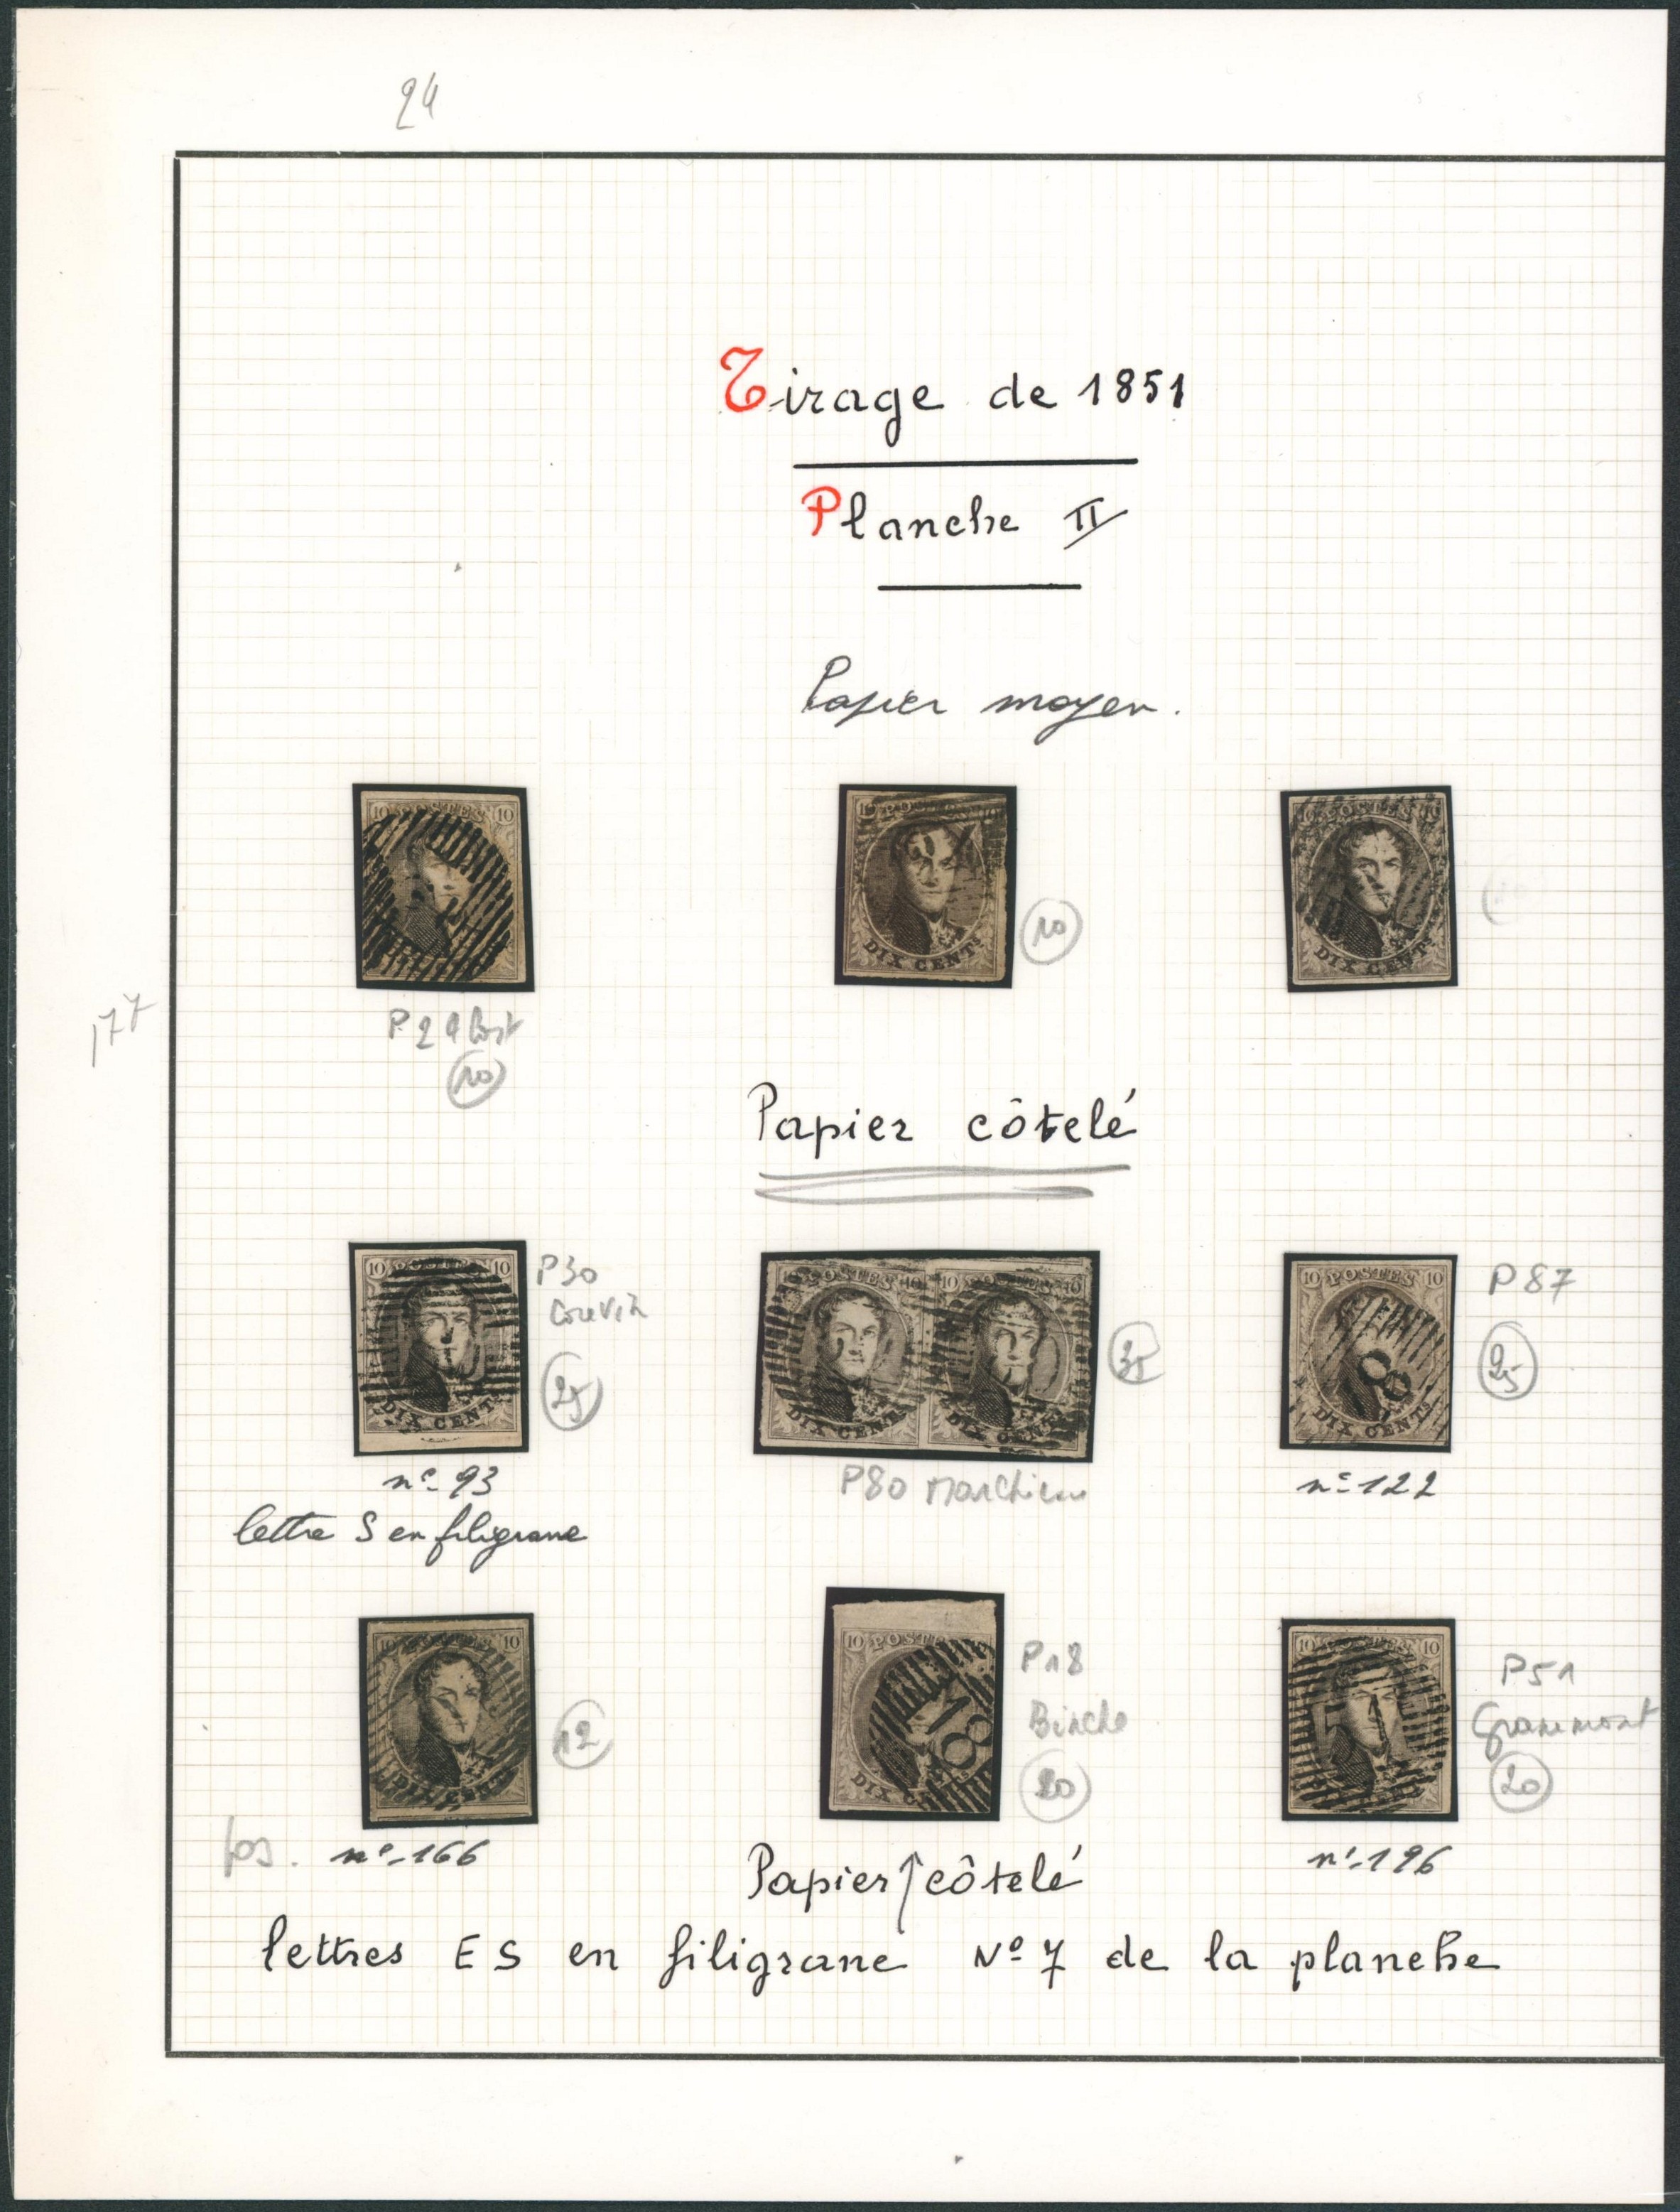 24
Tirage de 1851
Planche II
Papier moyen.
10 POSTES 10
POSTES
DIX CENTS
10
10 POSTES 10
DIX CENTS
P24
10
177
Papier côtelé
10 POSTES 10
DIX CENTS
P30
Couvin
25
10 POSTES 10
DIX CENTS
10 POSTES 10
DIX CENTS
35
10 POSTES 10
DIX CENTS
P87
25
nº 93
lettre S en filigrane
P80 Marchienne
nº 122
10 POSTES 10
DIX CENTS
12
10 POSTES
18
DIX
P18
Binche
20
10 POSTES 10
51
P51
Grammont
20
pos. nº 166
Papier côtelé
nº 196
lettres ES en filigrane Nº 7 de la planche